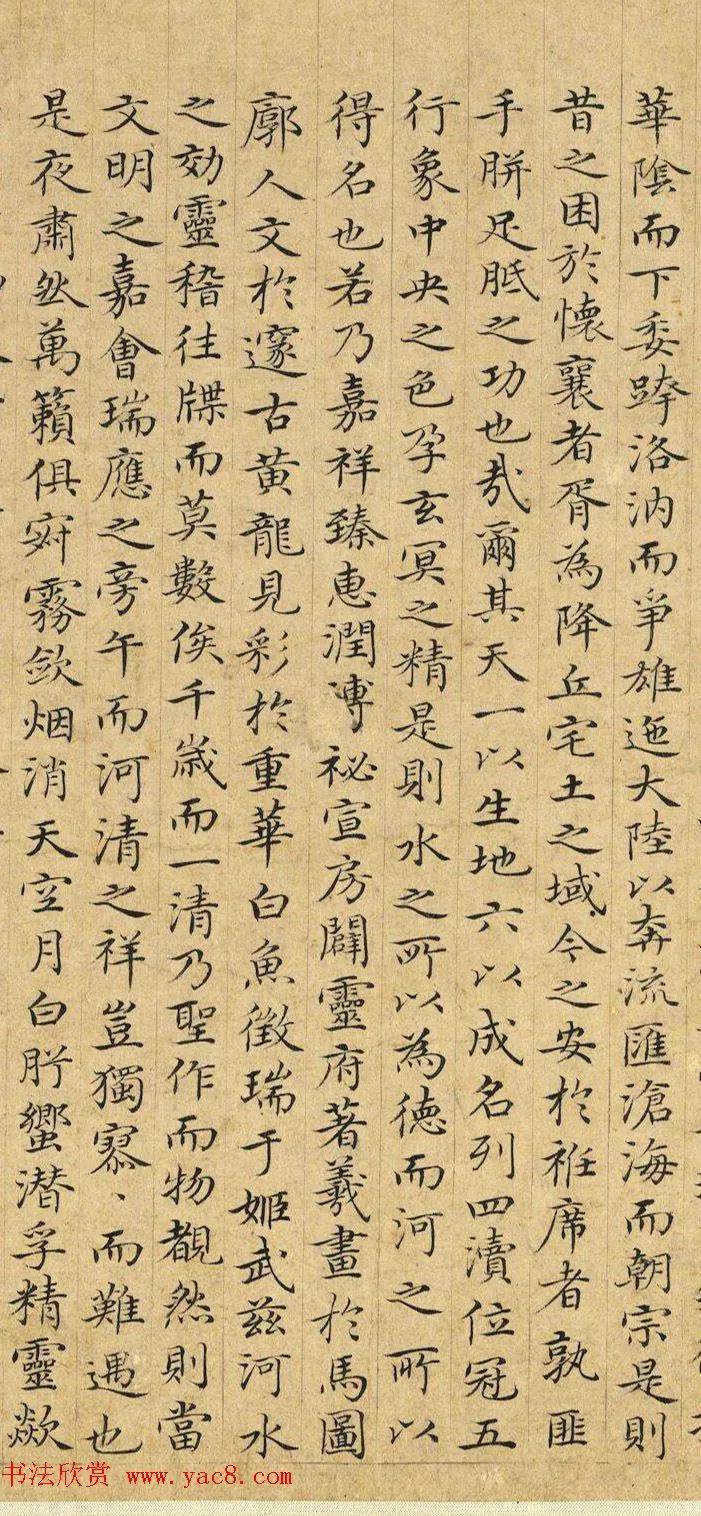 華陰而下委跨洛汭而爭雄迤大陸以奔流匯滄海而朝宗是則
昔之困於懷襄者胥為降丘宅土之域今之安於袵席者孰匪
手胼足胝之功也哉爾其天一以生地六以成名列四瀆位冠五
行象中央之色孕玄冥之精是則水之所以為德而河之所以
得名也若乃嘉祥臻惠潤溥祕宣房闢靈府著羲畫於馬圖
廓人文於邃古黃龍見彩於重華白魚徵瑞于姬武茲河水
之効靈稽往牒而莫數俟千歲而一清乃聖作而物覩然則當
文明之嘉會瑞應之旁午而河清之祥豈獨寥、而難遇也
是夜肅然萬籟俱寂霧斂烟消天空月白肸蠁潛孚精靈歘
书法欣赏 www.yac8.com